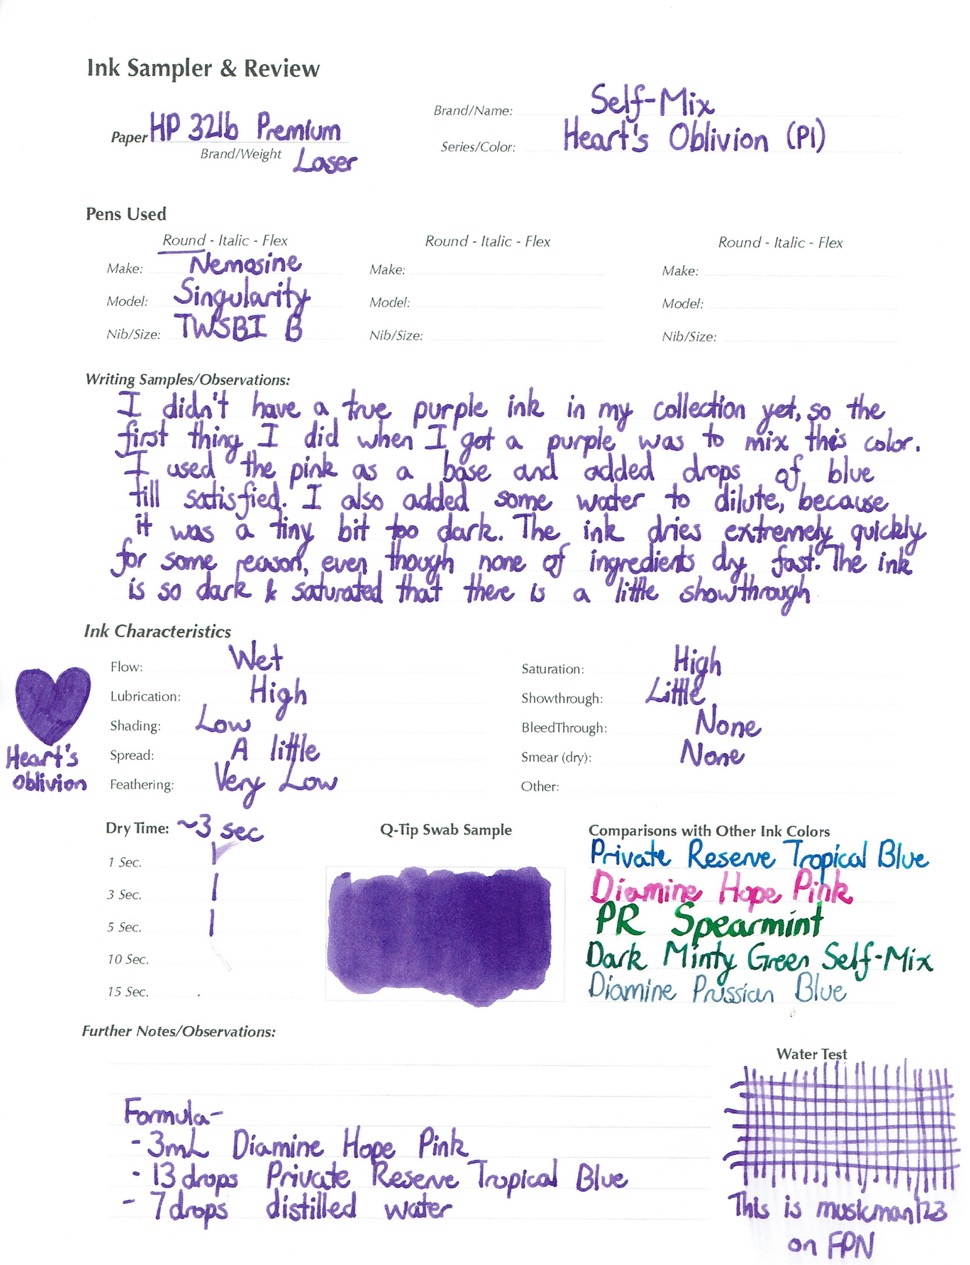 Ink Sampler & Review
Brand/Name: Self-Mix
Paper HP 32lb Premium
Brand/Weight Laser
Series/Color: Heart's Oblivion (P1)
Pens Used
Round - Italic - Flex
Make: Nemosine
Model: Singularity
Nib/Size: TWSBI B
Round - Italic - Flex
Make:
Model:
Nib/Size:
Round - Italic - Flex
Make:
Model:
Nib/Size:
Writing Samples/Observations:
I didn't have a true purple ink in my collection yet, so the
first thing I did when I got a purple was to mix this color.
I used the pink as a base and added drops of blue
till satisfied. I also added some water to dilute, because
it was a tiny bit too dark. The ink dries extremely quickly
for some reason, even though none of ingredients dry fast. The ink
is so dark & saturated that there is a little showthrough
Ink Characteristics
Flow: Wet
Lubrication: High
Shading: Low
Spread: A little
Feathering: Very Low
Saturation: High
Showthrough: Little
BleedThrough: None
Smear (dry): None
Other:
Heart's
Oblivion
Dry Time: ~3 sec
1 Sec.
3 Sec.
5 Sec.
10 Sec.
15 Sec.
Q-Tip Swab Sample
Comparisons with Other Ink Colors
Private Reserve Tropical Blue
Diamine Hope Pink
PR Spearmint
Dark Minty Green Self-Mix
Diamine Prussian Blue
Further Notes/Observations:
Formula-
- 3mL Diamine Hope Pink
- 13 drops Private Reserve Tropical Blue
- 7 drops distilled water
Water Test
This is musicman123
on FPN